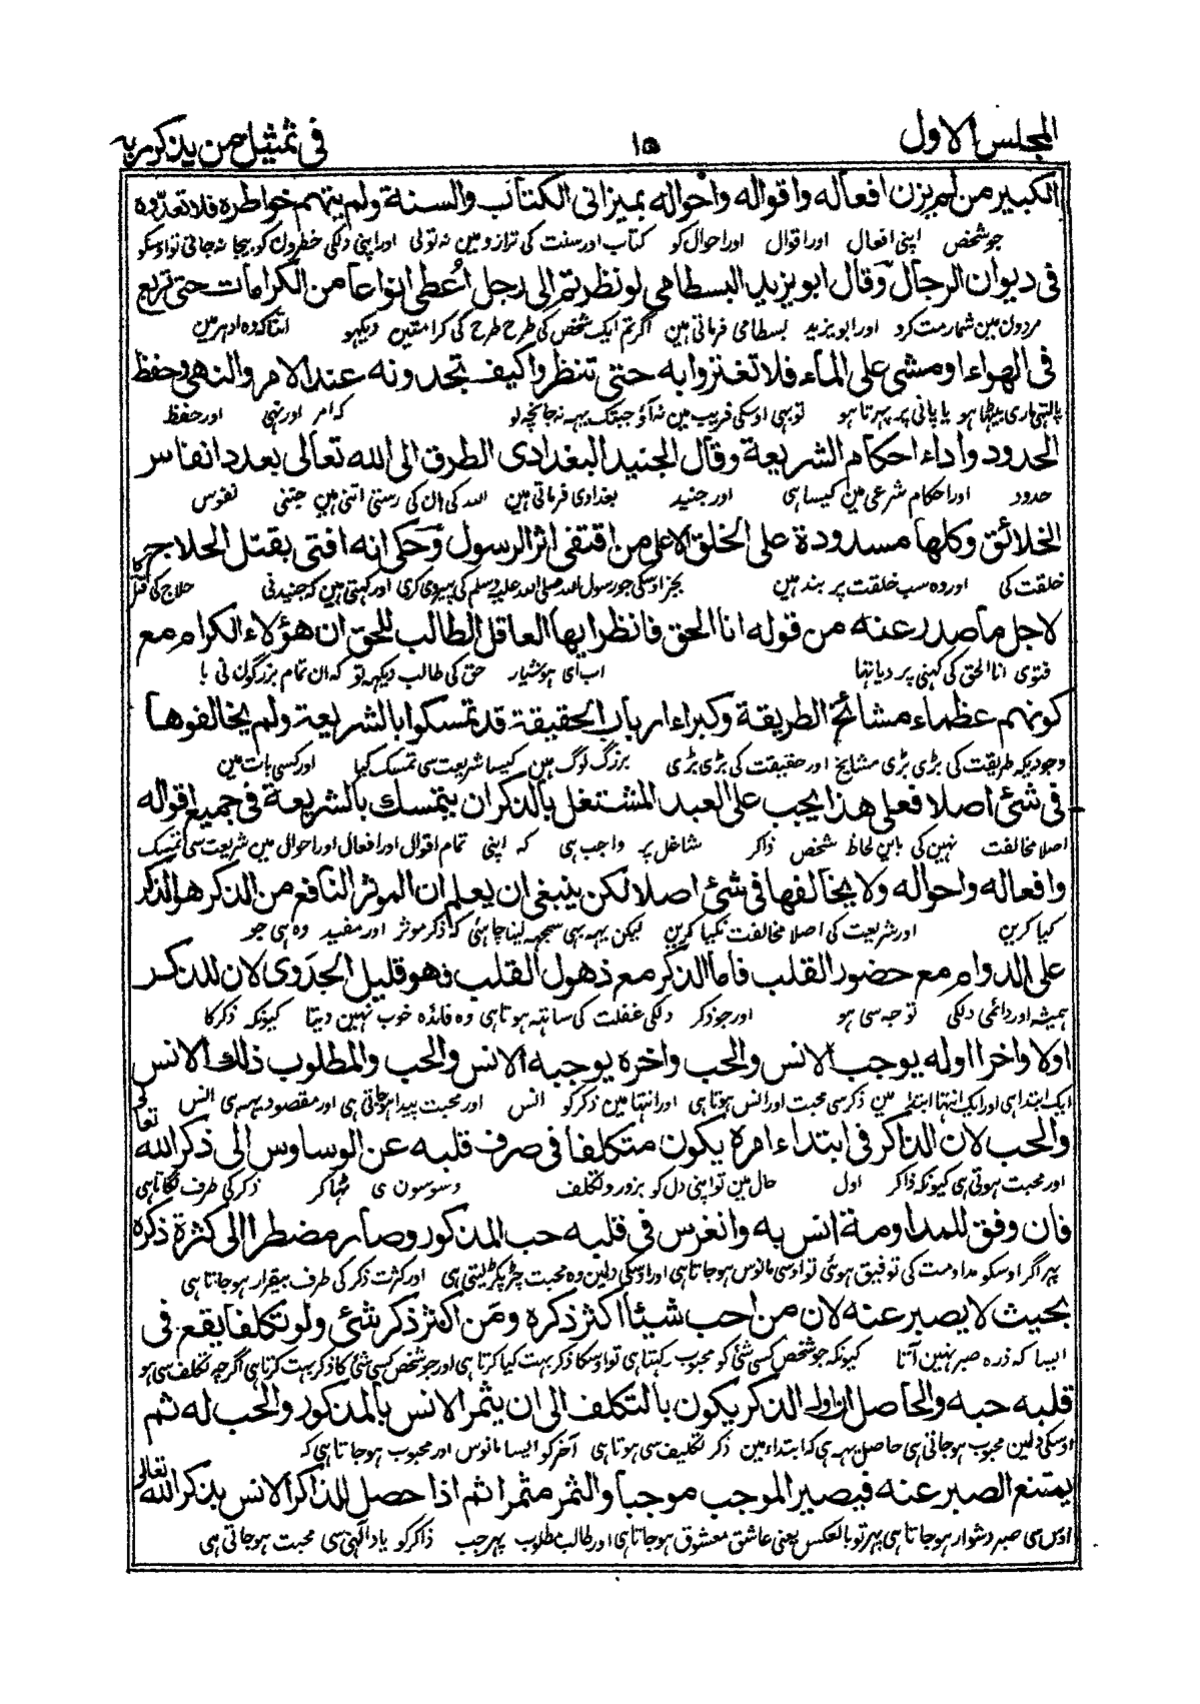 المجلس الاول ١٥ في تمثيل من يذكر ربه
الكبير من لم يزن افعاله واقواله واحواله بميزاني الكتاب والسنة ولم يتهم خواطره فلا تعدّوه
جو شخص اپنی افعال اور اقوال اور احوال کو کتاب اور سنت کی ترازو مین نہ تولی اور اپنی دلکی خطرون کو بیجا نہ جانی تو اوسکو
في ديوان الرجال وقال ابو يزيد البسطامي لو نظرتم الى رجل اُعطي انواعا من الكرامات حتى تربع
مردون مین شمار مت کرو اور ابو یزید بسطامی فرماتی ہین اگر تم ایک شخص کی طرح طرح کی کرامتین دیکہو اتنا کہ وہ ادہر مین
في الهواء او مشى على الماء فلا تغتروا به حتى تنظروا كيف تجدونه عند الامر والنهي وحفظ
پالتہی ماری بیٹہا ہو یا پانی پر پہرتا ہو توبہی اوسکی فریب مین نہ آؤ جبتک یہہ نہ جانچہ لو کہ امر اور نہی اور حفظ
الحدود واداء احكام الشريعة وقال الجنيد البغدادي الطرق الى الله تعالى بعدد انفاس
حدود اور احکام شرعی مین کیسا ہی اور جنید بغدادی فرماتی ہین اللہ کی ہان کی رستی اتنی ہین جتنی نفوس
الخلائق وكلها مسدودة على الخلق الا على من اقتفى اثر الرسول وحكي انه افتى بقتل الحلاج
خلقت کی اور وہ سب خلقت پر بند ہین بجز اوسکی جو رسول اللہ صلی اللہ علیہ وسلم کی پیروی کری اور کہتی ہین کہ جنید نی حلاج کی قتل
لاجل ما صدر عنه من قوله انا الحق فانظر ايها العاقل الطالب للحق ان هؤلاء الكرام مع
فتوی انا الحق کی کہنی پر دیا تہا اب ای ہوشیار حق کی طالب دیکہہ تو کہ ان تمام بزرگون نی با
كونهم عظماء مشائخ الطريقة وكبراء ارباب الحقيقة قد تمسكوا بالشريعة ولم يخالفوها
وجودیکہ طریقت کی بڑی بڑی مشایخ اور حقیقت کی بڑی بڑی بزرگ لوگ ہین کیسا شریعت سی تمسک کیا اور کسی بات مین
في شئ اصلا فعلى هذا يجب على العبد المشتغل بالذكر ان يتمسك بالشريعة في جميع اقواله
اصلا مخالفت نہین کی باین لحاظ شخص ذاکر شاغل پر واجب ہی کہ اپنی تمام اقوال اور افعال اور احوال مین شریعت سی تمسک
وافعاله واحواله ولا يخالفها في شئ اصلا لكن ينبغي ان يعلم ان الموثر النافع من الذكر هو الذكر
کیا کرین اور شریعت کی اصلا مخالفت نکیا کرین لیکن یہہ بہی سمجہہ لینا چاہئی کہ ذکر موثر اور مفید وہ ہی جو
على الدوام مع حضور القلب فاما الذكر مع ذهول القلب فهو قليل الجدوى لان للذكر
ہمیشہ اور دائمی دلکی توجہ سی ہو اور جو ذکر دلکی غفلت کی ساتہہ ہوتا ہی وہ فائدہ خوب نہین دیتا کیونکہ ذکر کا
اولا واخرا اوله يوجب الانس والحب واخره يوجبه الانس والحب والمطلوب ذلك الانس
ایک ابتدا ہی اور ایک انتہا ابتدا مین ذکر سی محبت اور انس ہوتا ہی اور انتہا مین ذکر کو انس اور محبت پیدا ہو جاتی ہی اور مقصود یہہ ہی انس
والحب لان الذاكر في ابتداء امره يكون متكلفا في صرف قلبه عن الوساوس الى ذكر الله تعالى
اور محبت ہوتی ہی کیونکہ ذاکر اول حال مین تو اپنی دل کو بزور و تکلف وسوسون سی ہٹا کر ذکر کی طرف لگاتا ہی
فان وفق للمداومة انس به وانغرس في قلبه حب المذكور وصار مضطرا الى كثرة ذكره
پہر اگر اوسکو مداومت کی توفیق ہوئی تو اوسی مانوس ہو جاتا ہی اور اوسکی دلین وہ محبت جڑ پکڑ لیتی ہی اور کثرت ذکر کی طرف بیقرار ہو جاتا ہی
بحيث لا يصبر عنه لان من احب شيئا اكثر ذكره ومن اكثر ذكر شئ ولو تكلفا يقع في
ایسا کہ ذرہ صبر نہین آتا کیونکہ جو شخص کسی شئ کو محبوب رکہتا ہی تو اوسکا ذکر بہت کیا کرتا ہی اور جو شخص کسی شئ کا ذکر بہت کرتا ہی اگرچہ تکلف سی ہو
قلبه حبه والحاصل ان اول الذكر يكون بالتكلف الى ان يثمر الانس بالمذكور والحب له ثم
اوسکی دلین محبوب ہو جاتی ہی حاصل یہہ ہی کہ ابتداء مین ذکر تکلیف سی ہوتا ہی آخر کو ایسا مانوس اور محبوب ہو جاتا ہی کہ
يمتنع الصبر عنه فيصير الموجب موجبا والثمر مثمرا ثم اذا حصل للذاكر الانس بذكر الله تعالى
اوس سی صبر دشوار ہو جاتا ہی پہر تو بالعکس یعنی عاشق معشوق ہو جاتا ہی اور طالب مطلوب پہر جب ذاکر کو یاد الٰہی سی محبت ہو جاتی ہی